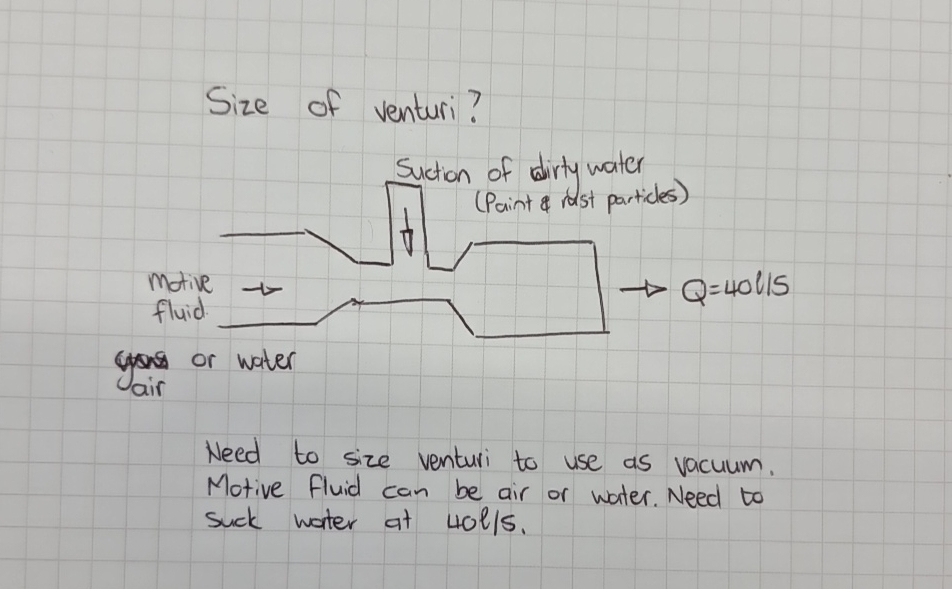 Size of venturi?
Suction of dirty water
(Paint & rust particles)
Motive
fluid
Q=40l/s
or water
air
Need to size venturi to use as vacuum.
Motive fluid can be air or water. Need to
suck water at 40l/s.